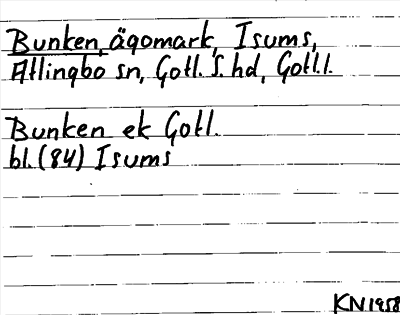 Bunken, ägomark, Isums,
Atlingbo sn, Gotl. S. hd, Gotl. l.
Bunken ek Gotl.
bl. (84) Isums
KN 1958